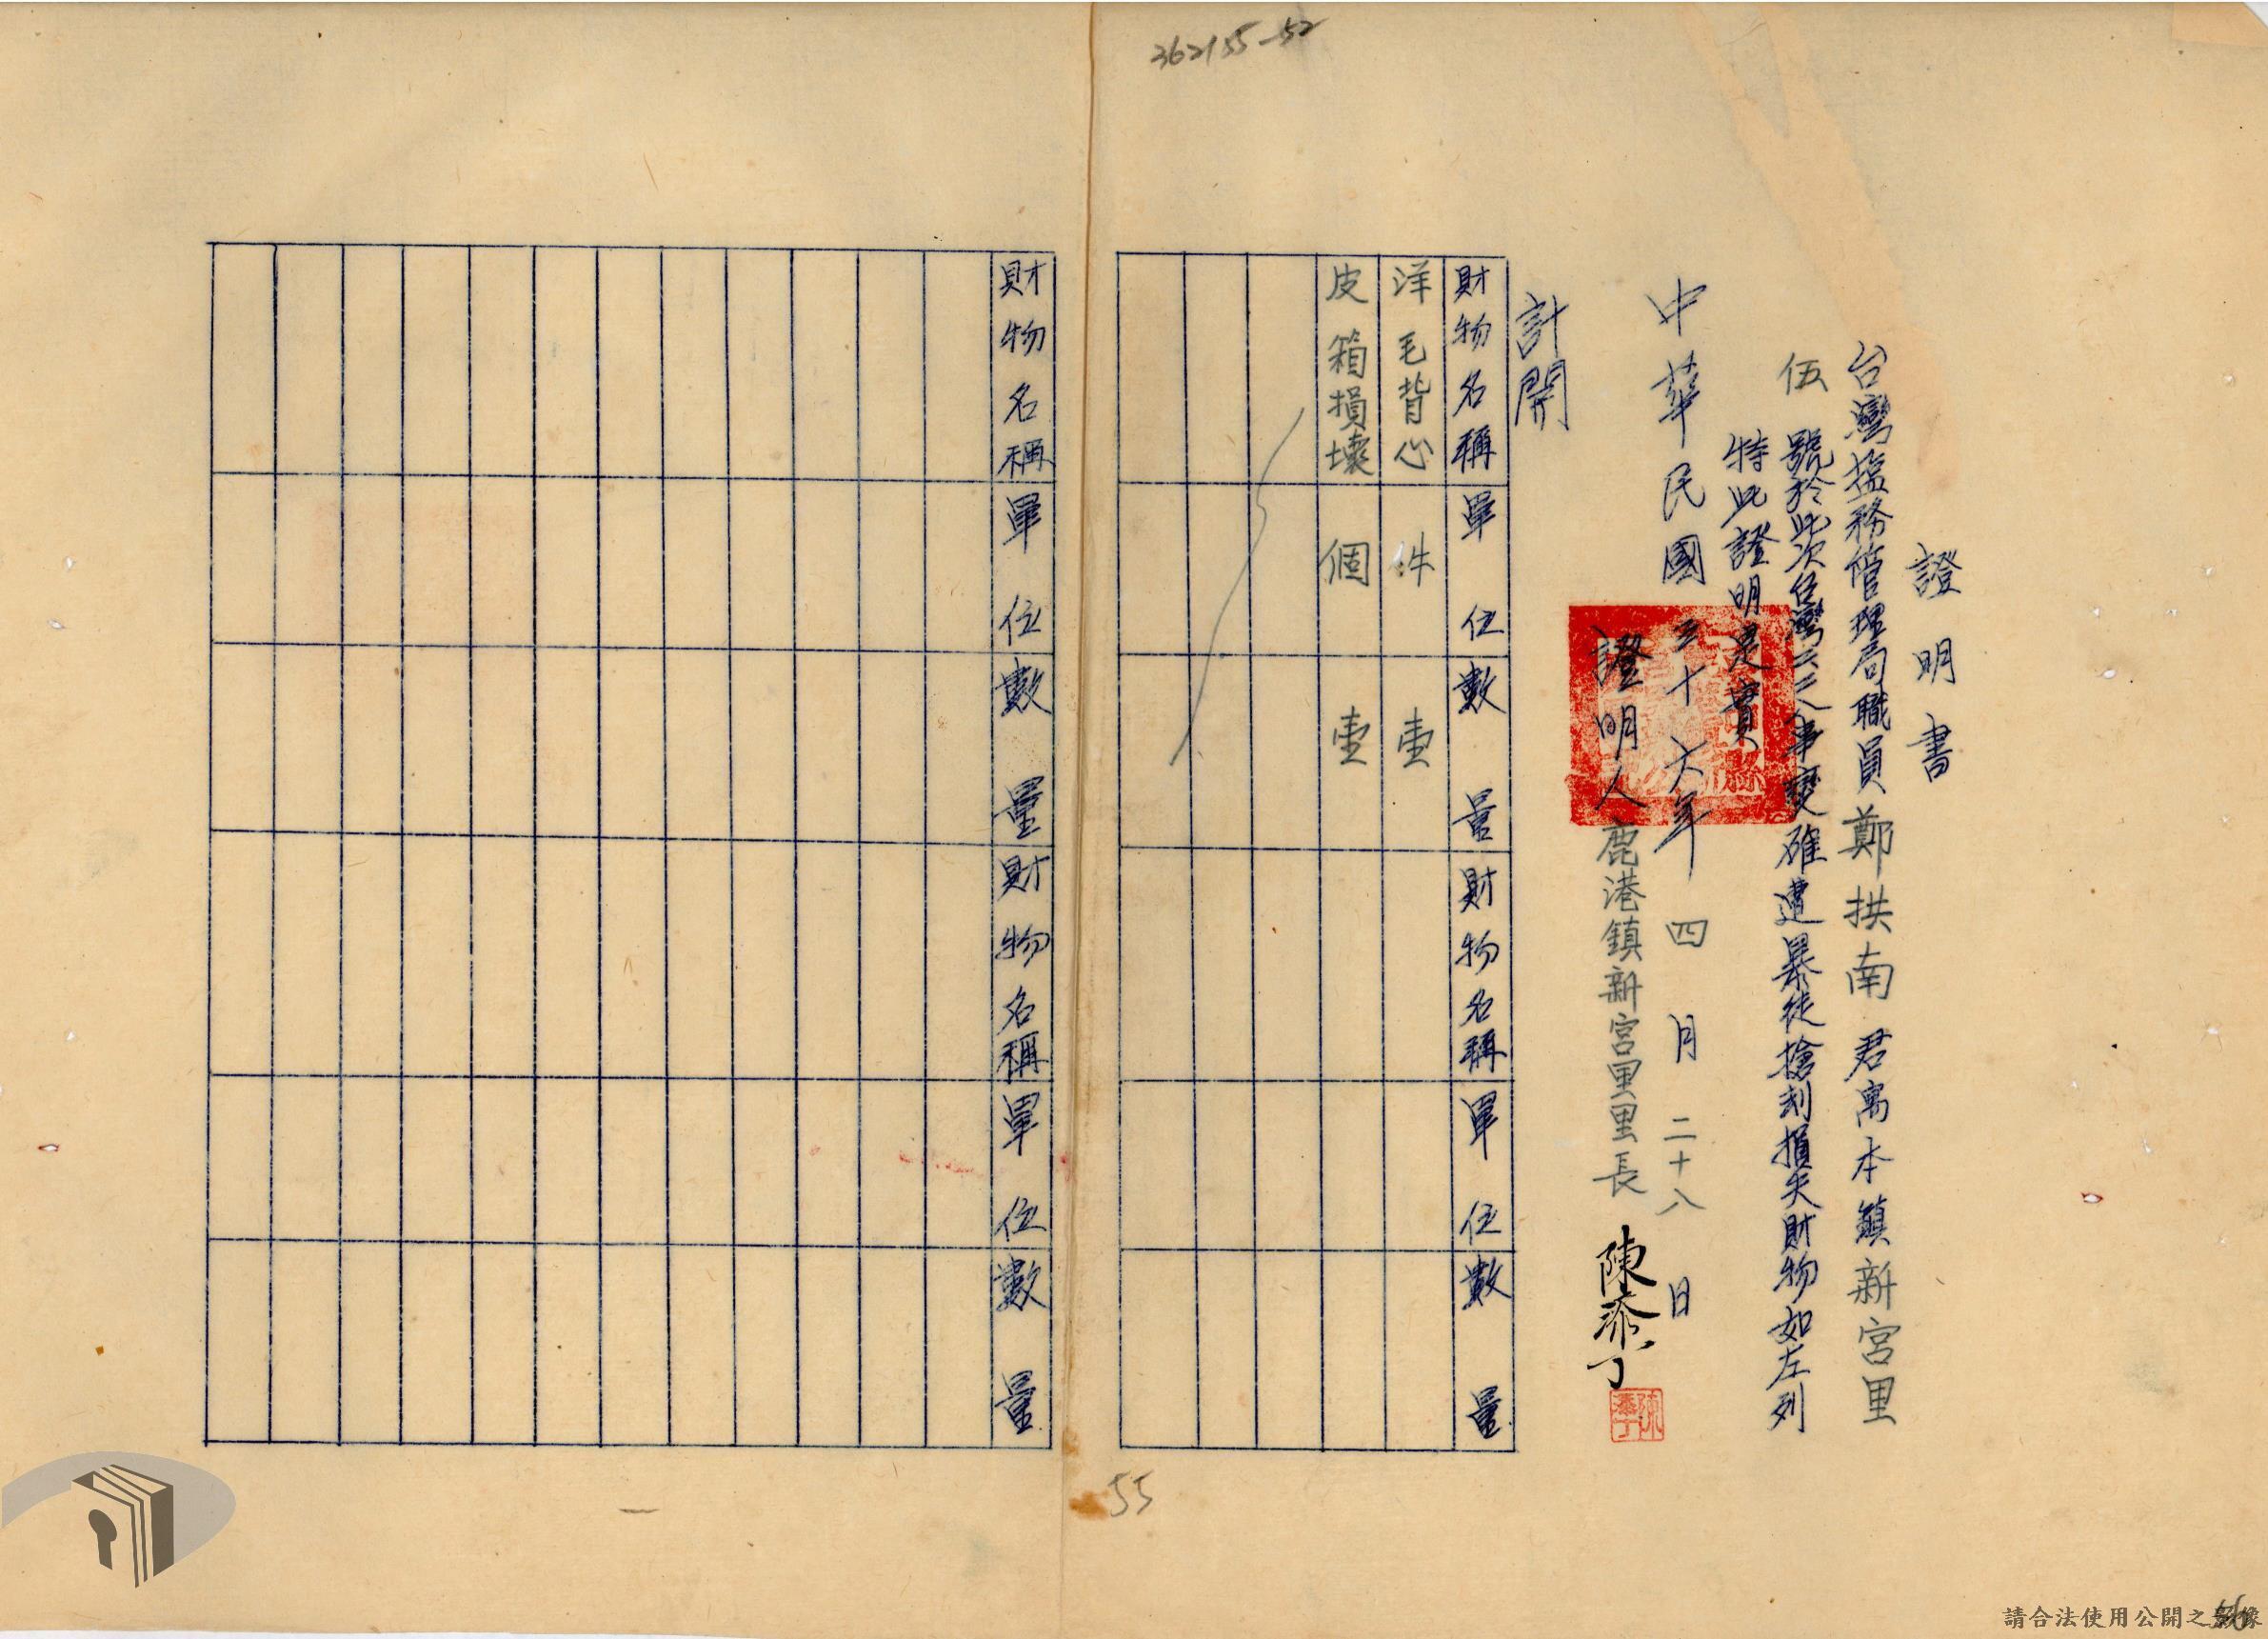 362155-52
證明書
台灣塩務管理局職員鄭拱南君寓本鎮新宮里
伍號於此次台灣二二八事變確遭暴徒搶刦損失財物如左列
特此證明是實
中華民國三十六年四月二十八日
證明人鹿港鎮新宮里里長陳添丁
計開
財物名稱 單位 數量 財物名稱 單位 數量
洋毛背心 件 壹
皮箱損壞 個 壹
財物名稱 單位 數量 財物名稱 單位 數量
55
請合法使用公開之影像